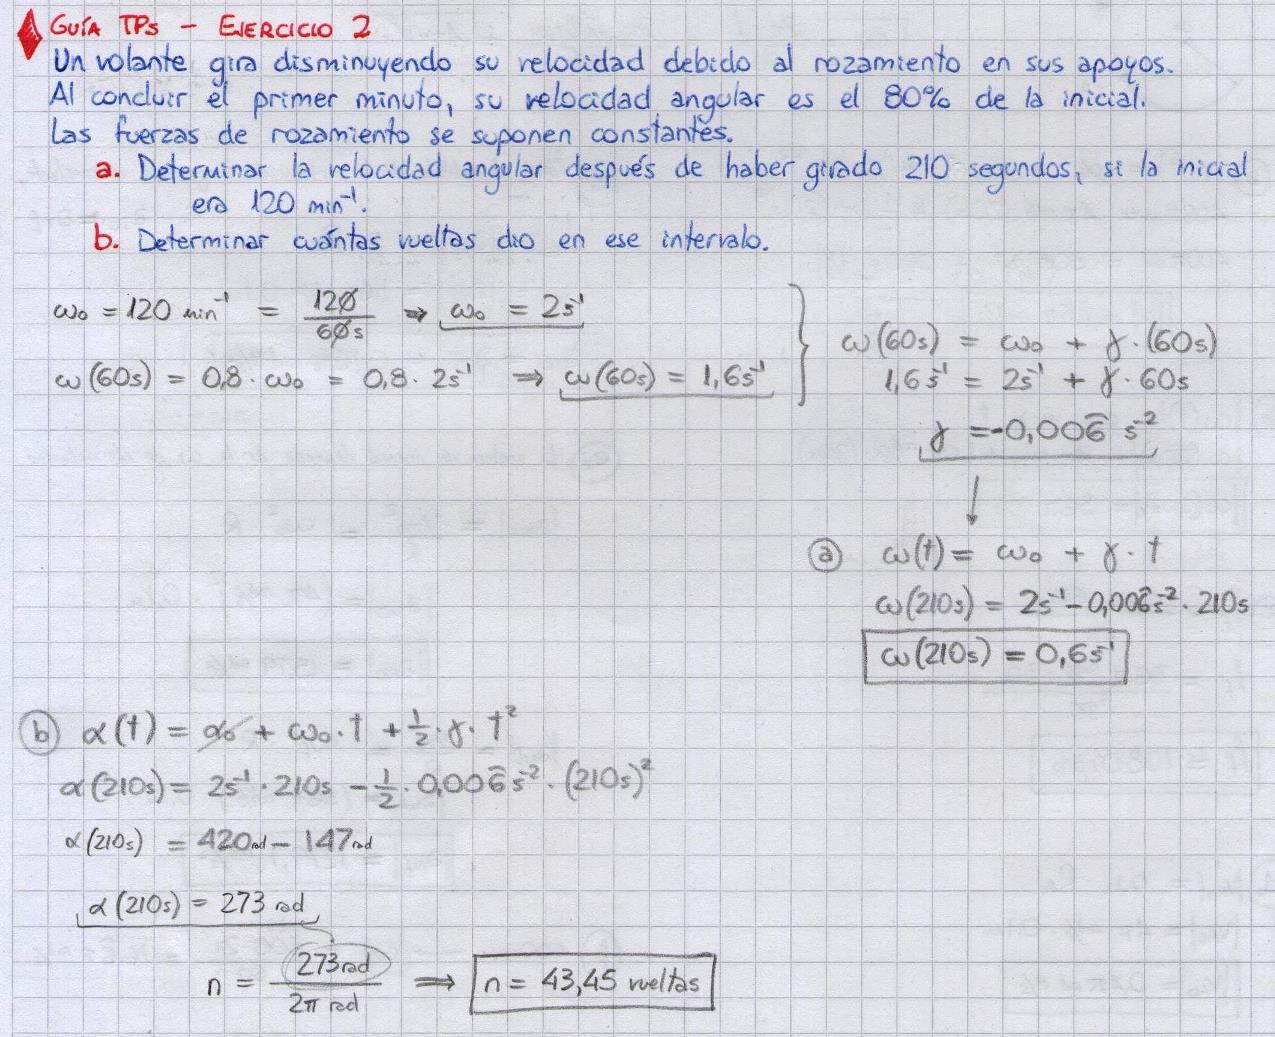 GUÍA TPs - EJERCICIO 2
Un volante gira disminuyendo su velocidad debido al rozamiento en sus apoyos.
Al concluir el primer minuto, su velocidad angular es el 80% de la inicial.
Las fuerzas de rozamiento se suponen constantes.
a. Determinar la velocidad angular después de haber girado 210 segundos, si la inicial
era 120 min⁻¹.
b. Determinar cuántas vueltas dio en ese intervalo.
ω₀ = 120 min⁻¹ = 120/60s ⇒ ω₀ = 2s⁻¹
ω(60s) = 0,8 · ω₀ = 0,8 · 2s⁻¹ ⇒ ω(60s) = 1,6s⁻¹
ω(60s) = ω₀ + γ · (60s)
1,6s⁻¹ = 2s⁻¹ + γ · 60s
γ = -0,006̂ s⁻²
a ω(t) = ω₀ + γ · t
ω(210s) = 2s⁻¹ - 0,006̂s⁻² · 210s
ω(210s) = 0,6s⁻¹
b α(t) = α₀ + ω₀ · t + 1/2 · γ · t²
α(210s) = 2s⁻¹ · 210s - 1/2 · 0,006̂ s⁻² · (210s)²
α(210s) = 420rad - 147rad
α(210s) = 273 rad
n = 273rad/2π rad ⇒ n = 43,45 vueltas